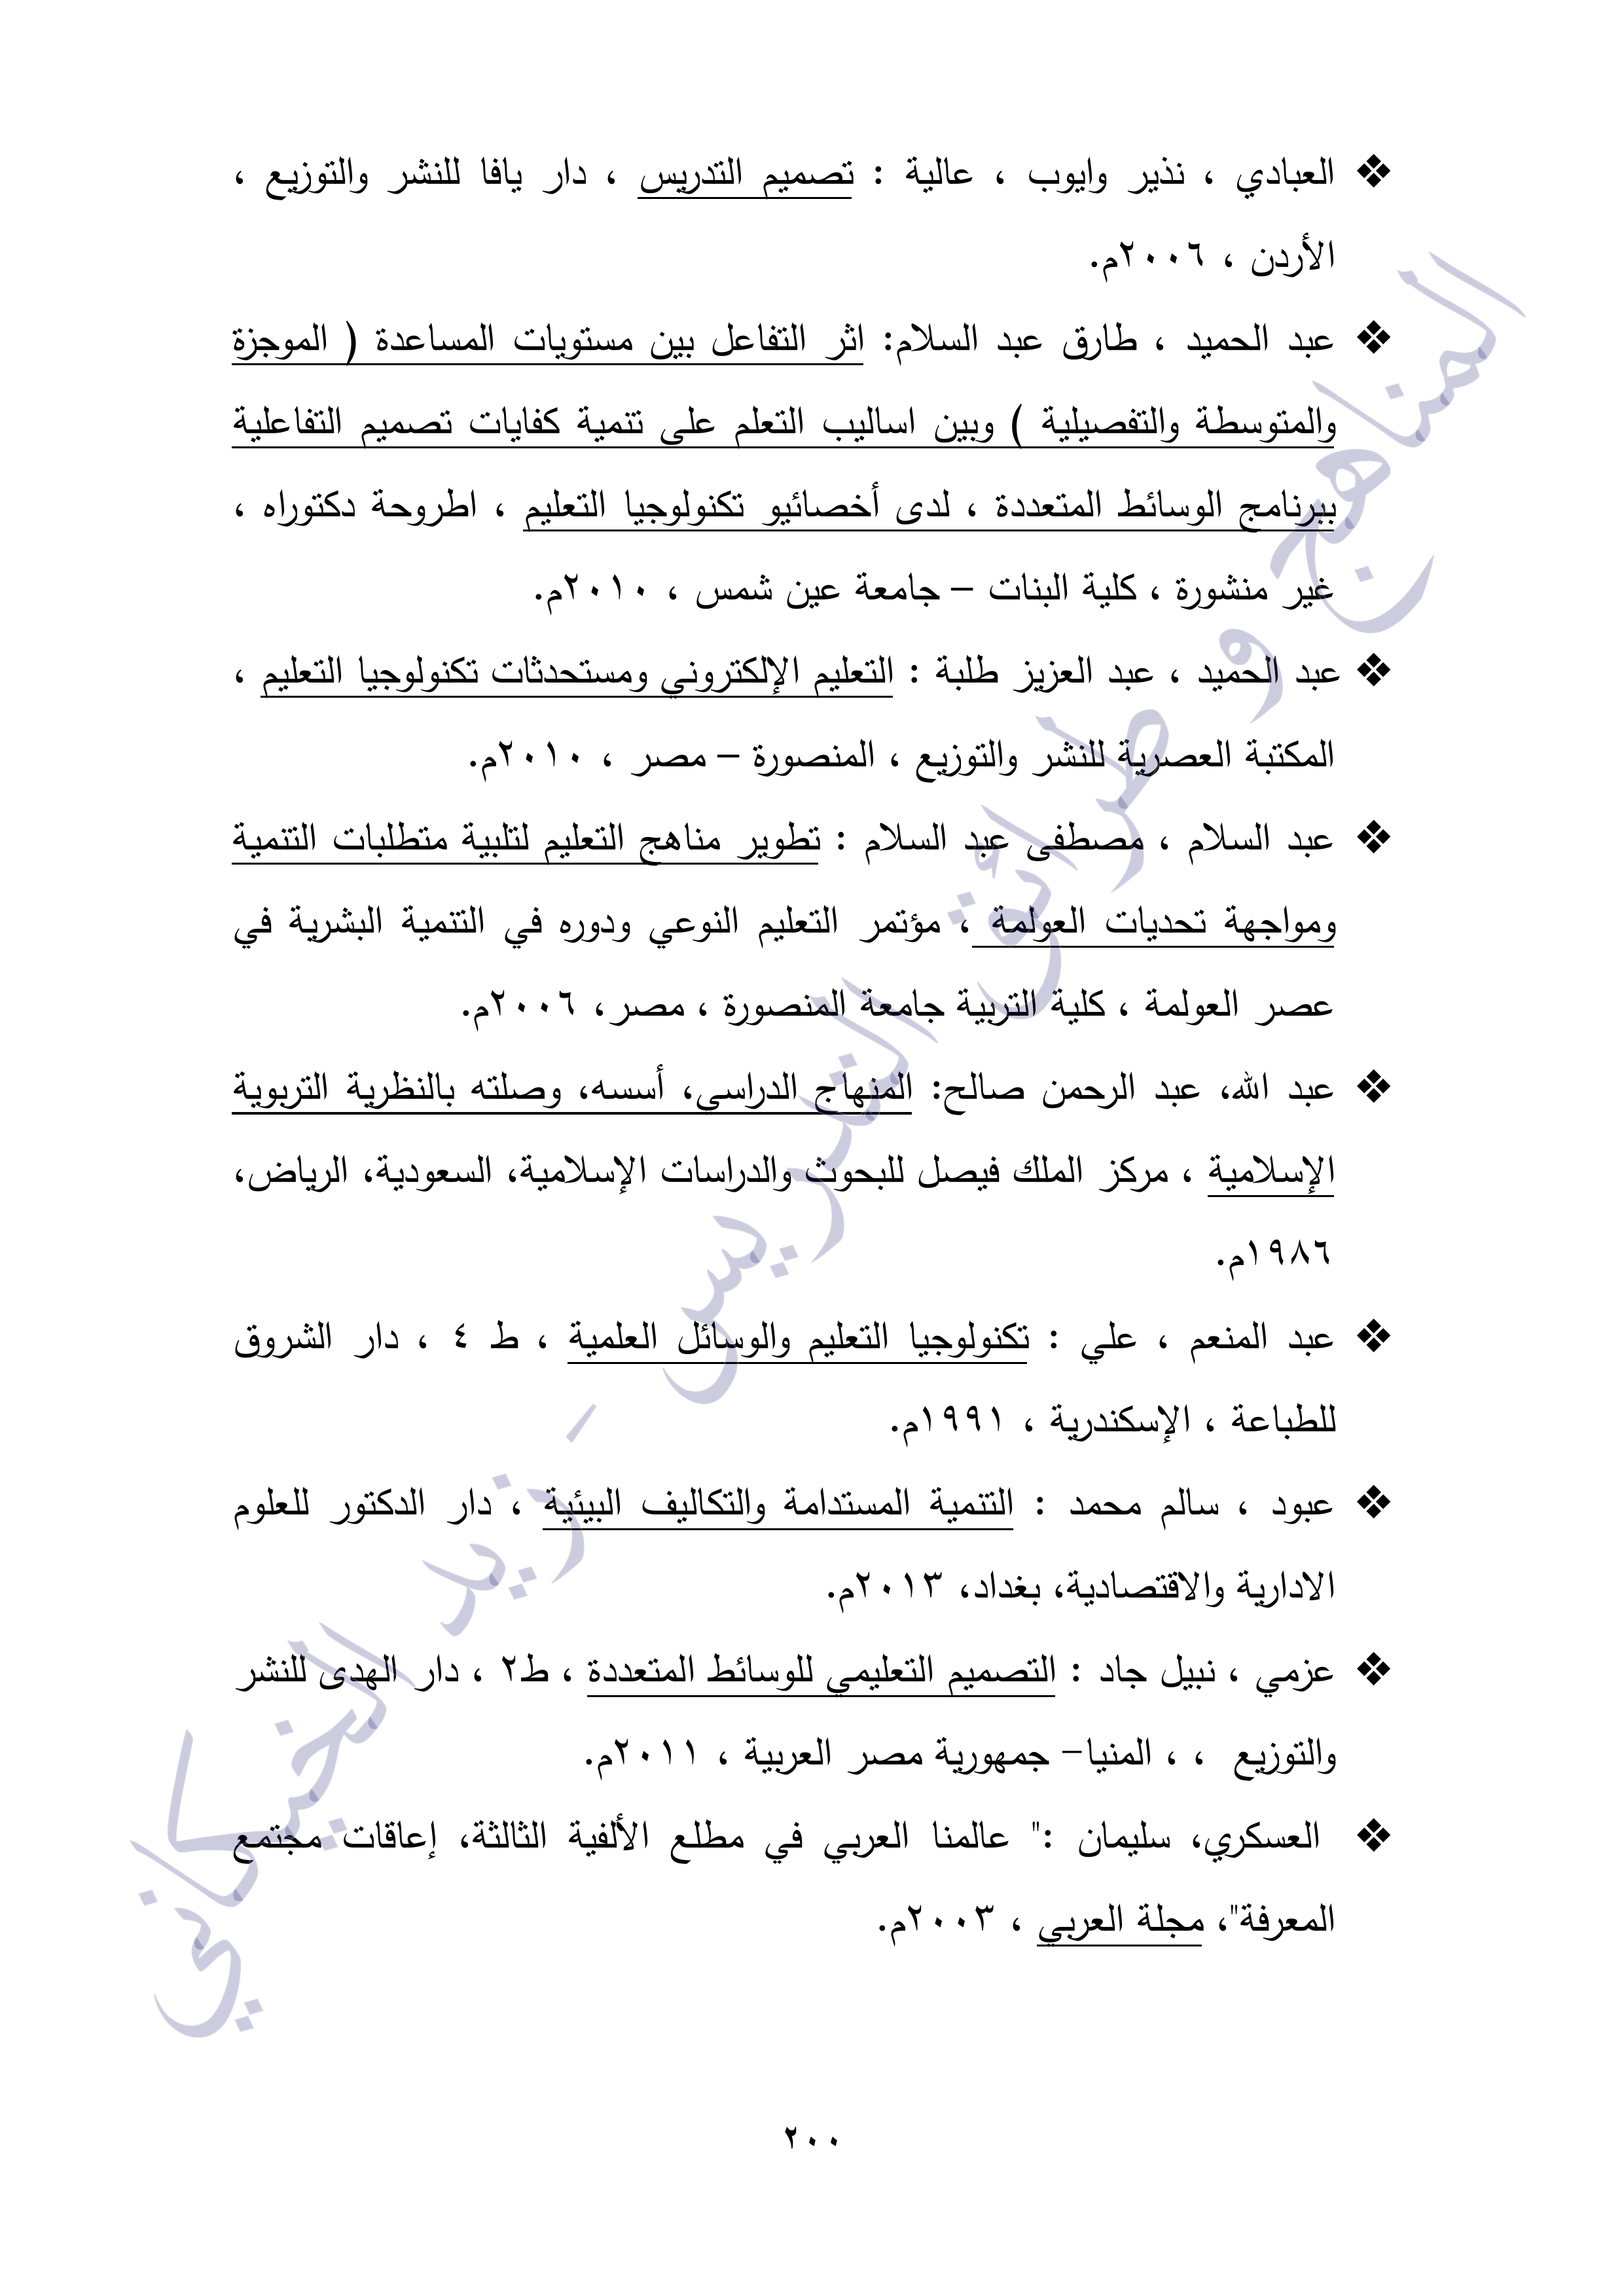 ❖ العبادي ، نذير وايوب ، عالية : تصميم التدريس ، دار يافا للنشر والتوزيع ،
الأردن ، ٢٠٠٦م.
❖ عبد الحميد ، طارق عبد السلام: اثر التفاعل بين مستويات المساعدة ( الموجزة
والمتوسطة والتفصيلية ) وبين اساليب التعلم على تنمية كفايات تصميم التفاعلية
ببرنامج الوسائط المتعددة ، لدى أخصائيو تكنولوجيا التعليم ، اطروحة دكتوراه ،
غير منشورة ، كلية البنات – جامعة عين شمس ، ٢٠١٠م.
❖ عبد الحميد ، عبد العزيز طلبة : التعليم الإلكتروني ومستحدثات تكنولوجيا التعليم ،
المكتبة العصرية للنشر والتوزيع ، المنصورة – مصر ، ٢٠١٠م.
❖ عبد السلام ، مصطفى عبد السلام : تطوير مناهج التعليم لتلبية متطلبات التنمية
ومواجهة تحديات العولمة ، مؤتمر التعليم النوعي ودوره في التنمية البشرية في
عصر العولمة ، كلية التربية جامعة المنصورة ، مصر، ٢٠٠٦م.
❖ عبد الله، عبد الرحمن صالح: المنهاج الدراسي، أسسه، وصلته بالنظرية التربوية
الإسلامية ، مركز الملك فيصل للبحوث والدراسات الإسلامية، السعودية، الرياض،
١٩٨٦م.
❖ عبد المنعم ، علي : تكنولوجيا التعليم والوسائل العلمية ، ط ٤ ، دار الشروق
للطباعة ، الإسكندرية ، ١٩٩١م.
❖ عبود ، سالم محمد : التنمية المستدامة والتكاليف البيئية ، دار الدكتور للعلوم
الادارية والاقتصادية، بغداد، ٢٠١٣م.
❖ عزمي ، نبيل جاد : التصميم التعليمي للوسائط المتعددة ، ط٢ ، دار الهدى للنشر
والتوزيع ، ، المنيا– جمهورية مصر العربية ، ٢٠١١م.
❖ العسكري، سليمان :" عالمنا العربي في مطلع الألفية الثالثة، إعاقات مجتمع
المعرفة"، مجلة العربي ، ٢٠٠٣م.
٢٠٠
المناهج و طرائق التدريس - زيد الخيكاني